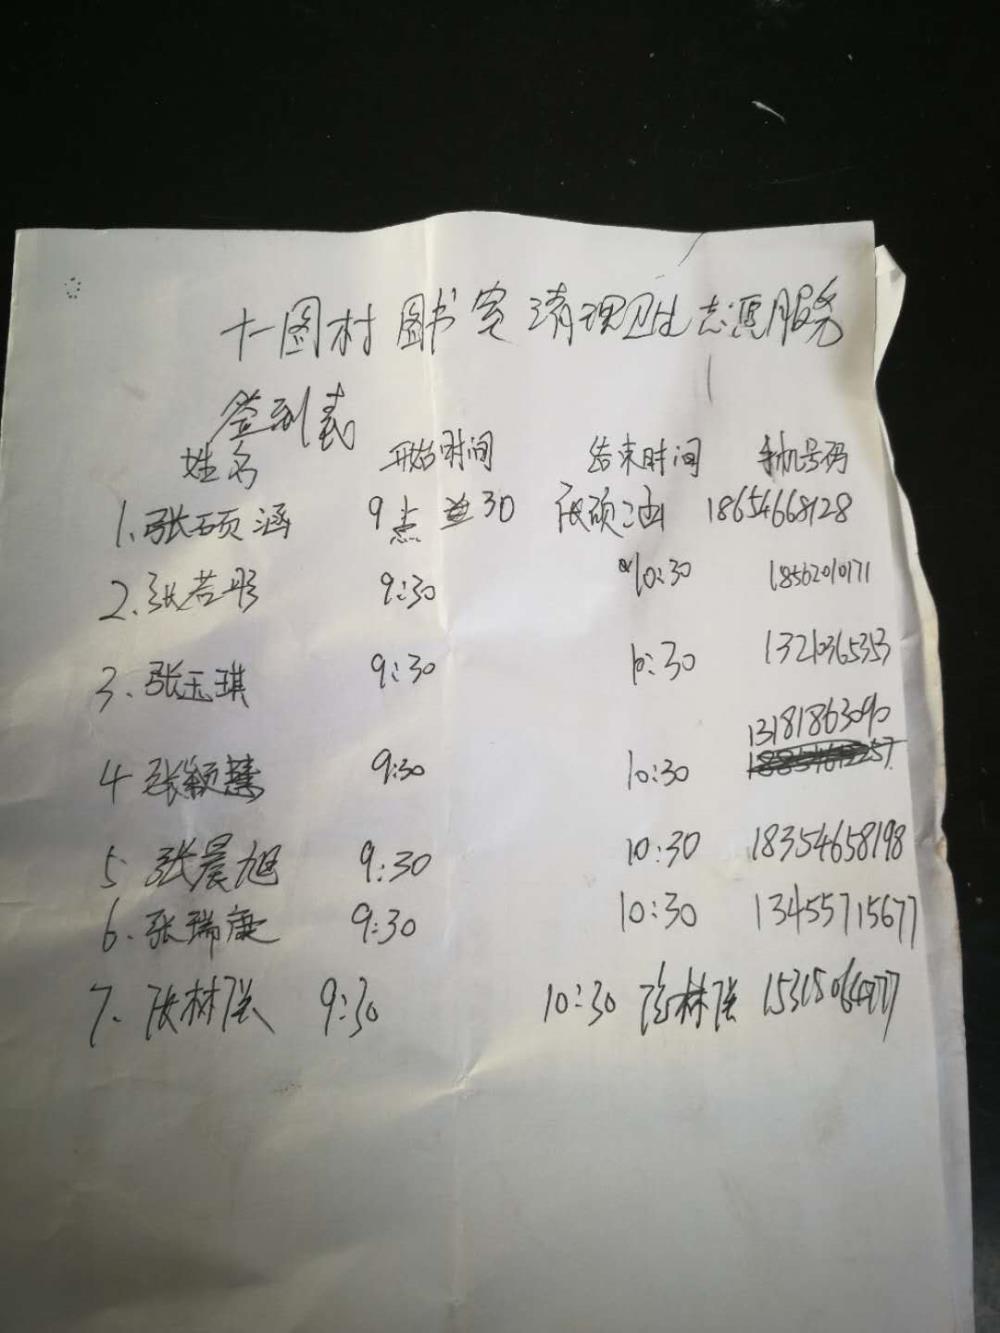 十一图村 图书室 清理卫生志愿服务
签到表
姓名 开始时间 结束时间 手机号码
1.张硕涵 9点 30 张硕涵 18654668128
2.张若彤 9:30 10:30 18562010171
3.张玉琪 9:30 10:30 13210365353
13181863090
4 张颖慧 9:30 10:30
5 张晨旭 9:30 10:30 18354658198
6.张瑞康 9:30 10:30 13455715677
7.张林强 9:30 10:30 张林强